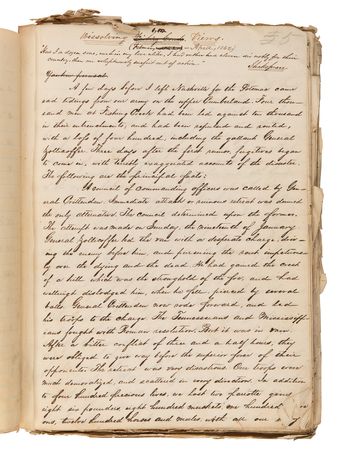 Dissolving Views.
April, 1862
Had I a dozen sons, each in my love alike, I had rather had eleven die nobly for their
country, than one voluptuously surfeit out of action."
Shakspeare
A few days before I left Nashville for the Potomac came
sad tidings from our army on the upper Cumberland. Four thou-
sand men at Fishing Creek had been led against ten thousand
in their intrenchments, and had been defeated and routed,
with a loss of five hundred, including the gallant General
Zollicoffer. Three days after the first rumor, fugitives began
to come in, with terribly exaggerated accounts of the disaster.
The following are the principal facts:
A council of commanding officers was called by Gen-
eral Crittenden. Immediate attack or announced retreat was deemed
the only alternatives. The council determined upon the former.
The attempt was made on Sunday, the nineteenth of January.
General Zollicoffer led the van with a desperate charge, driv-
ing the enemy before him, and pursuing the rout impetuous-
ly over the dying and the dead. He had gained the crest
of a hill which was the stronghold of the foe and had
wellnigh dislodged him, when he fell pierced by several
balls. General Crittenden now rode forward, and led
his troops to the charge. The Tennesseeans and Mississippi-
ans fought with Roman resolution. But it was in vain.
After a bitter conflict of three and a half hours, they
were obliged to give way before the superior force of their
opponents. The retreat was very disastrous. Our troops were
much demoralized, and scattered in every direction. In addition
to four hundred precious lives, we lost two favorite guns,
eight six pounders, eight hundred muskets, one hundred
ons, twelve hundred horses and mules, with all our